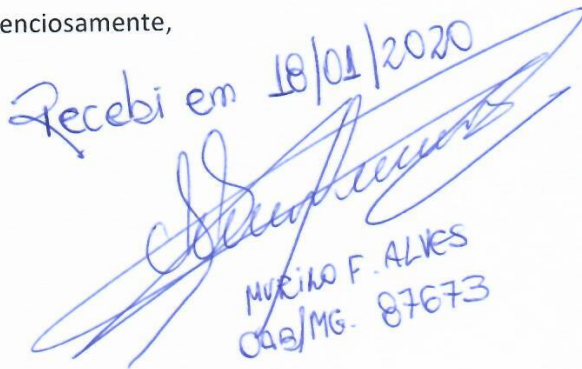 enciosamente,
Recebi em 18/01/2020
MURILO F. ALVES
OAB/MG. 87673